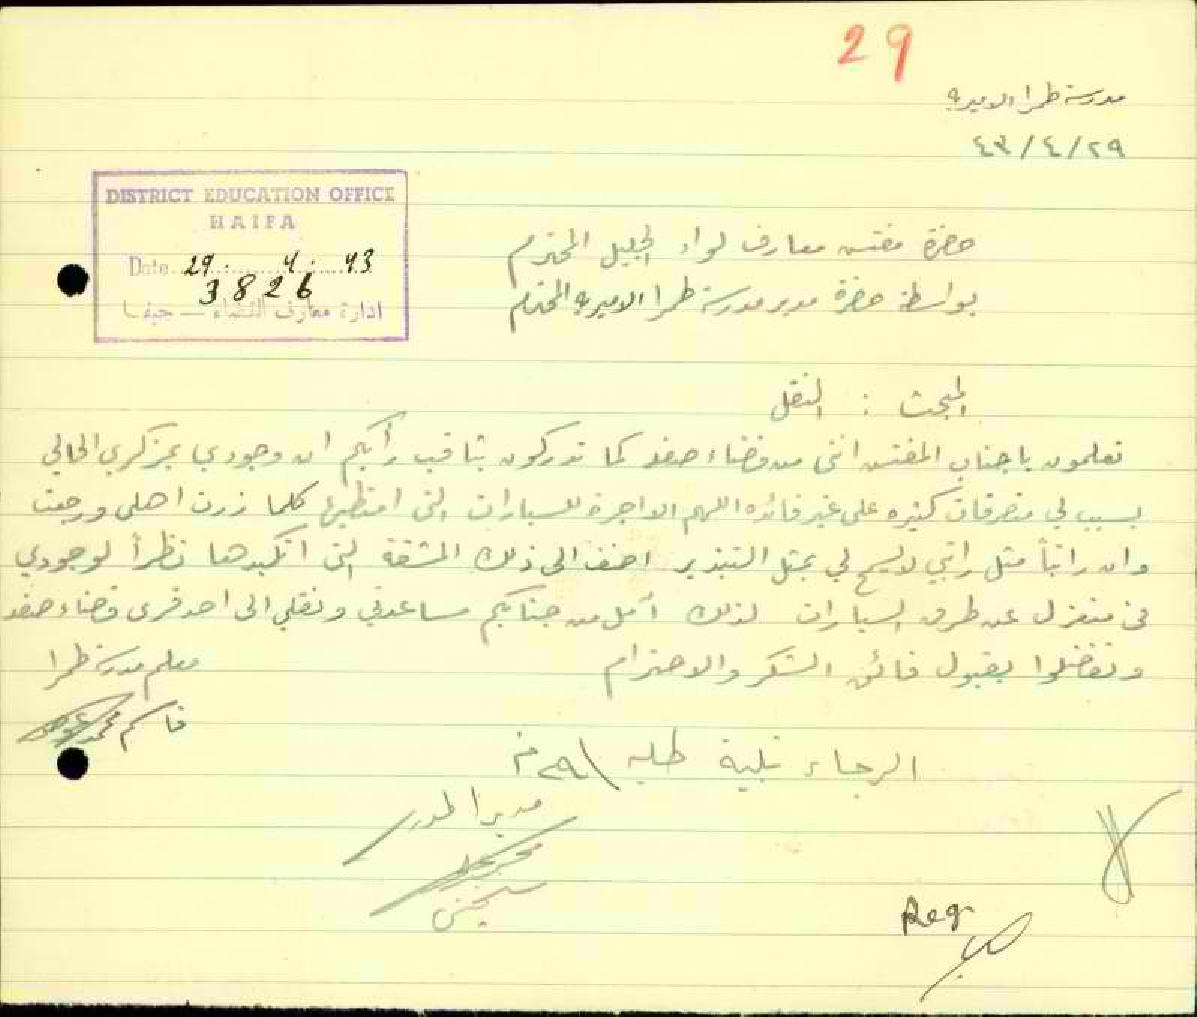 29
مدرسة طمرا الاميريه
٢٩/٤/٤٣
DISTRICT EDUCATION OFFICE
HAIFA
Date 29. 4. 43
3826
ادارة معارف القضاء — حيفا
حضرة مفتش معارف لواء الجليل المحترم
بواسطة حضرة مدير مدرسة طمرا الاميريه المحترم
المبحث : النقل
تعلمون يا جناب المفتش انني من قضاء صفد كما تدركون بثاقب رأيكم ان وجودي بمركزي الحالي
يسبب لي متفرقات كثيره على غير فائده اللهم الا اجرة للسيارات التي امتطيها كلما زرت اهلي ورجعت
وان راتباً مثل راتبي لا يسمح لي بمثل التبذير اضف الى ذلك المشقة التي اتكبدها نظراً لوجودي
في منعزل عن طرق السيارات لذلك آمل من جنابكم مساعدتي ونقلي الى احد قرى قضاء صفد
وتفضلوا بقبول فائق الشكر والاحترام
معلم مدرسة طمرا
قاسم محمد
الرجاء تلبية طلبه
مدير المدرسة
Reg.